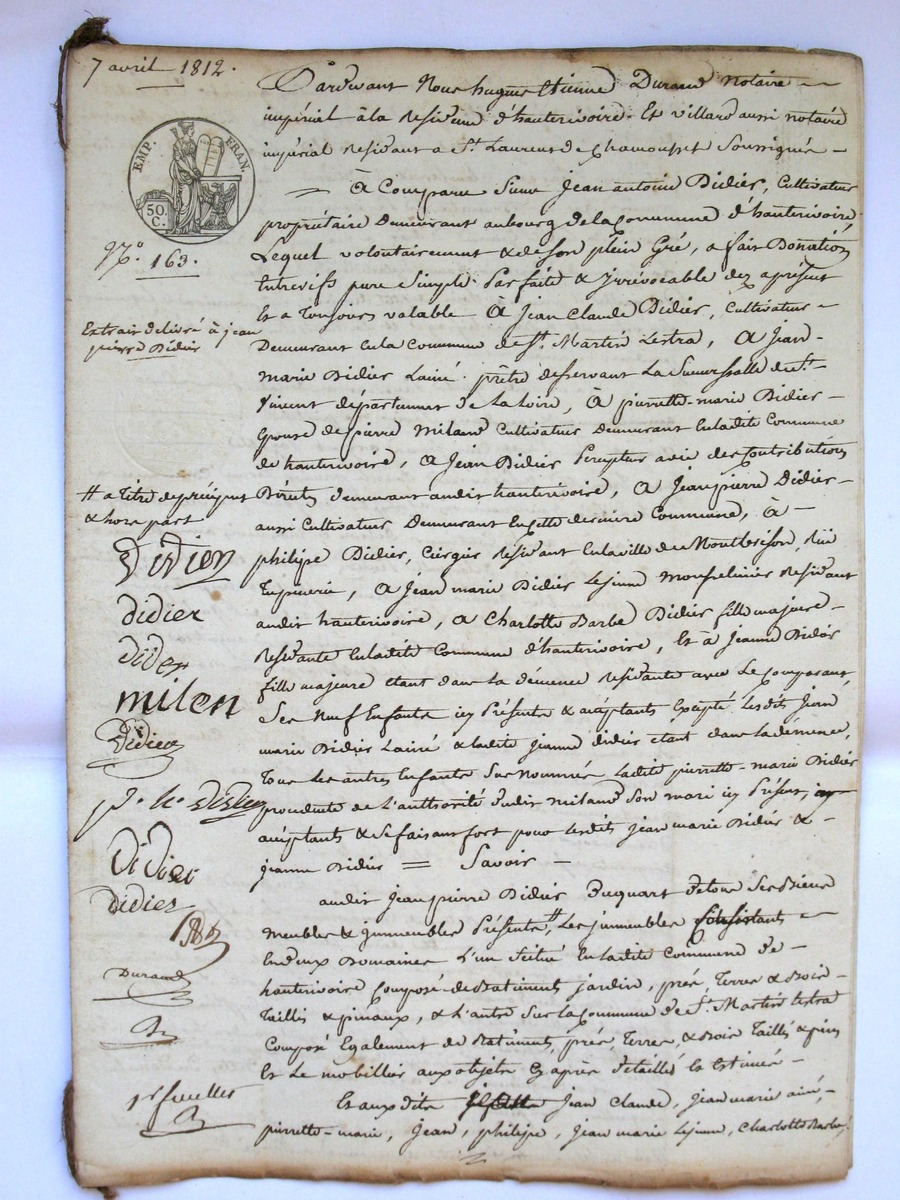 7 avril 1812.
EMP. FRAN.
50.
C.
N.º 163.
Extrait délivré à jean
pierre Didier
# a titre de préciput
& hors part
Didier
didier
didier
milen
Didier
ph. Didier
Didier
didier
Durand
1er feuillet
Pardevant Nous hugues Etienne Durand Notaire
impérial à la Residence d'hauterivoire. Et Villard aussi notaire
impérial Residant a St. Laurent de Chamousset Soussignés
à Comparu Sieur Jean antoine Didier, Cultivateur
propriétaire Demeurant au bourg de la Commune d'hauterivoire
Lequel volontairement & de son plein Gré, a fait Donation
Entrevifs pure Simple Parfaite & Irrévocable dez aprésent
Et a Toujours valable à Jean Claude Didier, Cultivateur
Demeurant en la Commune de St. Martin Lestra, à Jean
Marie Didier Lainé prêtre desservant La Succursalle de St.
Vincent département de La Loire, à pierrette-marie Didier
Epouse de pierre milan Cultivateur Demeurant en ladite Commune
de hauterivoire, à Jean Didier Percepteur des Contributions
Directes demeurant audit hauterivoire, à Jean pierre Didier
aussi Cultivateur Demeurant en cette derniere Commune, à
philipe Didier, Cirgier Residant en la ville de Montbrison, Rüe
Tupinerie, à Jean marie Didier Lejeune Residant
audit hauterivoire, à Charlotte Barbe Didier fille majeure
Residante en ladite Commune d'hauterivoire, Et à Jeanne Didier
fille majeure étant dans la démence Residante avec Le Comparant,
Ses Neuf Enfants icy Présents & acceptants Excepté Lesdits Jean
marie Didier Lainé & ladite Jeanne didier étant dans la démence,
Tous les autres Enfants Sus Nommés Ladite pierrette-marie Didier
procedante de L'authorité dudit milan Son mari icy Présent,
acceptants & Se faisant fort pour Lesdits Jean marie Didier &
Jeanne Didier = Savoir
audit Jean pierre Didier Du quart de tous Ses Biens
meubles & immeubles Présents #, Les immeubles Consistants
En deux Domaines L'un Scitué En ladite Commune de
hauterivoire Composé de Batiments jardin, prés, Terres & Bois
Taillis & pinaux, & L'autre Sur La Commune de St. Martin Lestra
Composé Egalement de Batiments, prés, Terres, & Bois Taillis & pins
Et Le mobillier aux objets Cy après détaillés Et Estimés
Et auxdits Jean Claude, Jean marie ainé,
pierrette-marie, Jean, philipe, Jean marie Lejeune, Charlotte Barbe,